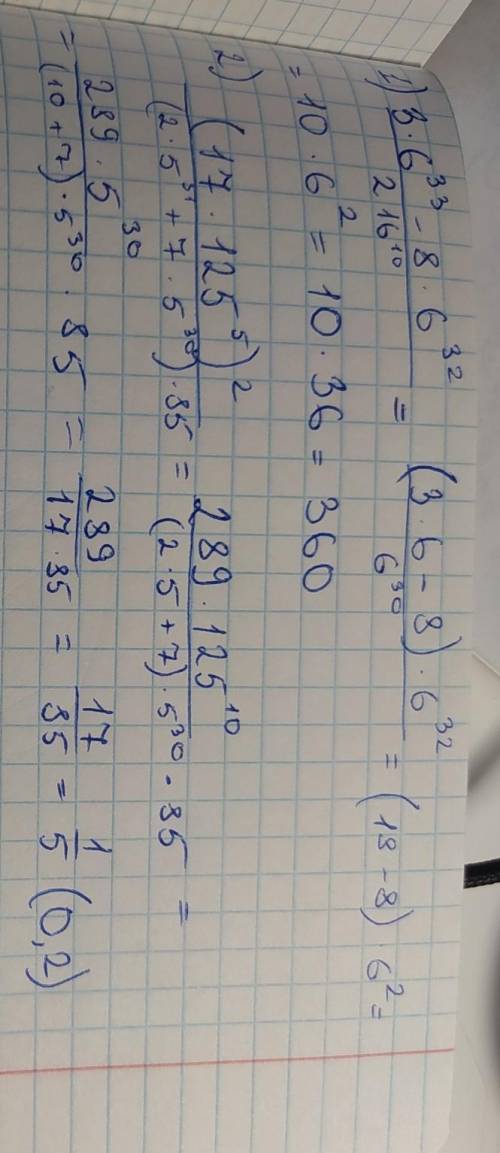 1) (3·6³³ - 8·6³²)/216¹⁰ = ((3·6-8)·6³²)/6³⁰ = (18-8)·6² =
= 10·6² = 10·36 = 360
2) (17·125⁵)²/((2·5³¹+7·5³⁰)·85) = (289·125¹⁰)/((2·5+7)·5³⁰·85) =
= (289·5³⁰)/((10+7)·5³⁰·85) = 289/(17·85) = 17/85 = 1/5 (0,2)